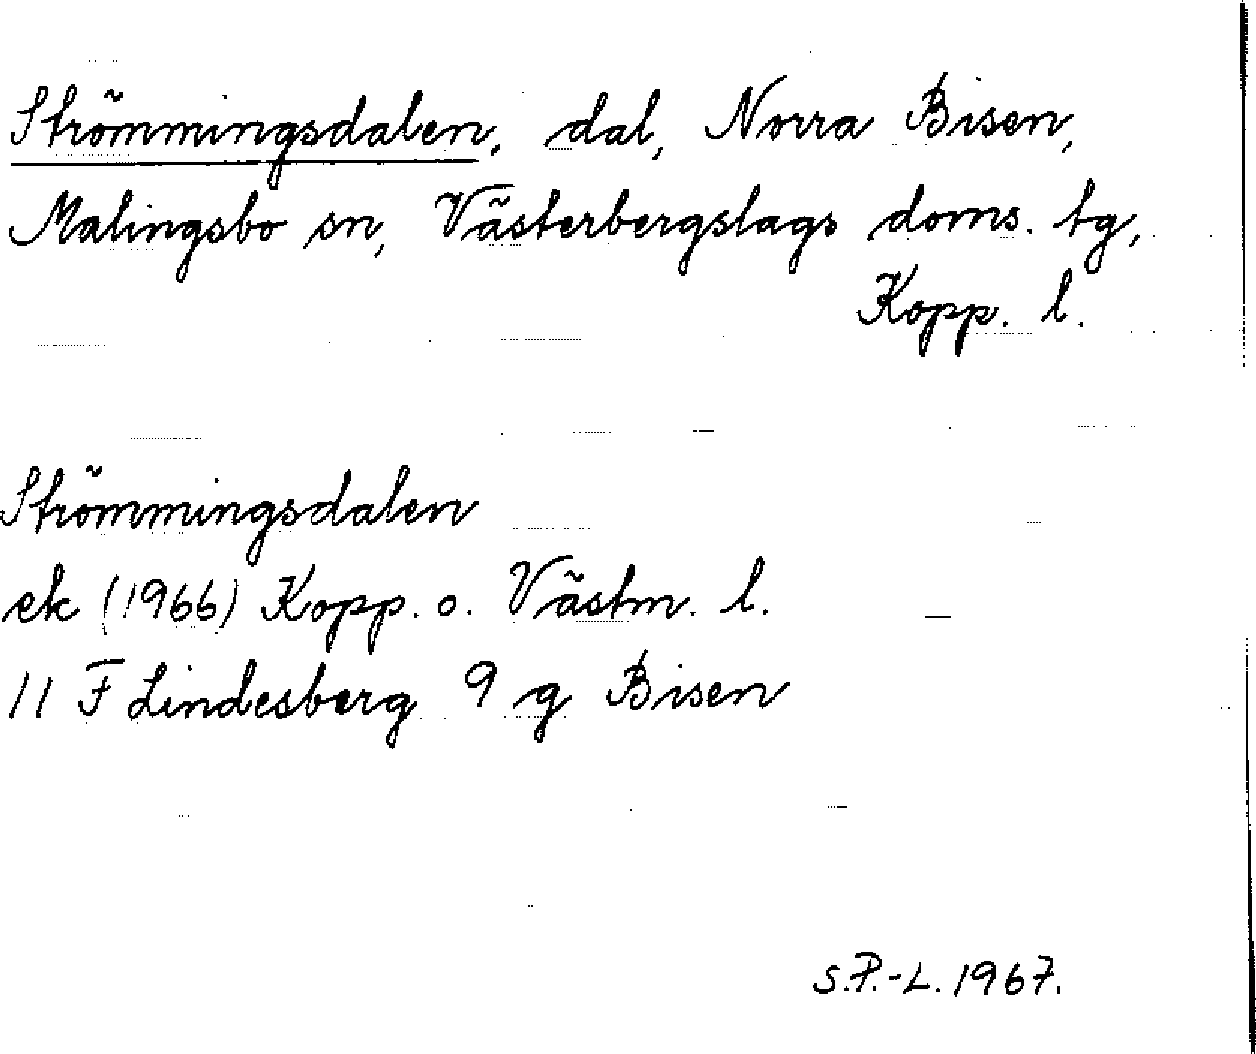 Strömmingsdalen, dal, Norra Bisen,
Malingsbo sn, Västerbergslags doms. tg,
Kopp. l.
Strömmingsdalen
ek (1966) Kopp. o. Västm. l.
11 F Lindesberg 9 g Bisen
S.P.-L. 1967.